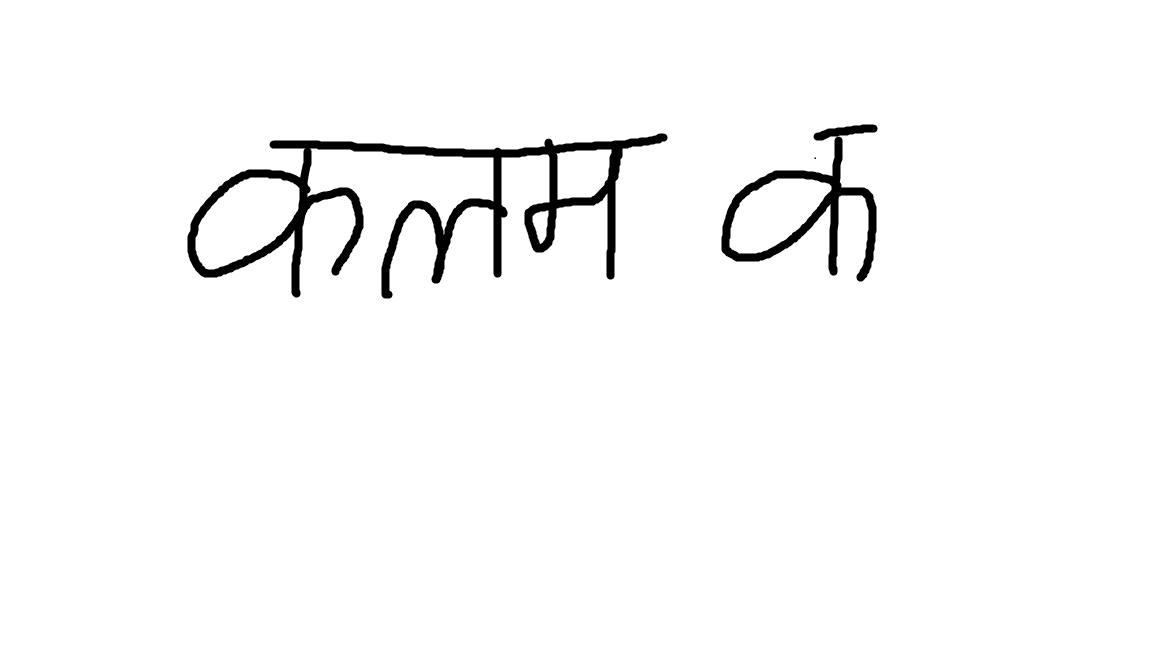 कलम क